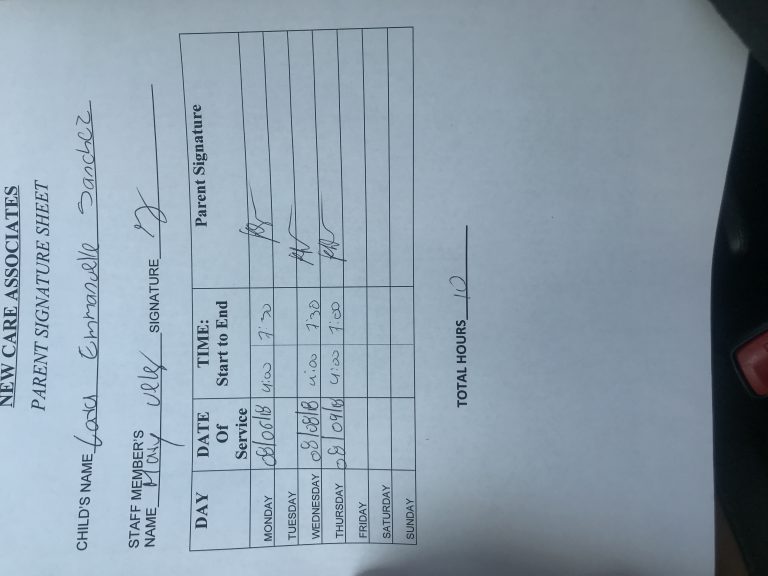 NEW CARE ASSOCIATES
PARENT SIGNATURE SHEET
CHILD'S NAME Emmanuelle Sanchez
STAFF MEMBER'S
NAME Mary Velez SIGNATURE
DAY DATE Of Service TIME: Start to End Parent Signature
MONDAY 08/06/18 4:00 7:30
TUESDAY
WEDNESDAY 08/08/18 4:00 7:30
THURSDAY 08/09/18 4:00 7:00
FRIDAY
SATURDAY
SUNDAY
TOTAL HOURS 10